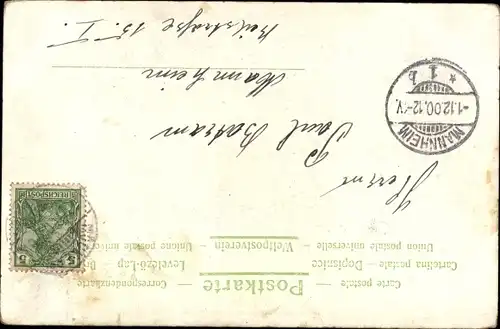 Postkarte
Carte postale — Correspondenzkarte
Cartolina postale — Dopisnice — Levelező-Lap
Union postale universelle — Weltpostverein — Unione postale universale
REICHSPOST
5 5
MANNHEIM
-1.12.00. 12-V.
* 1 b
Herrn
Paul
Mannheim
15. I